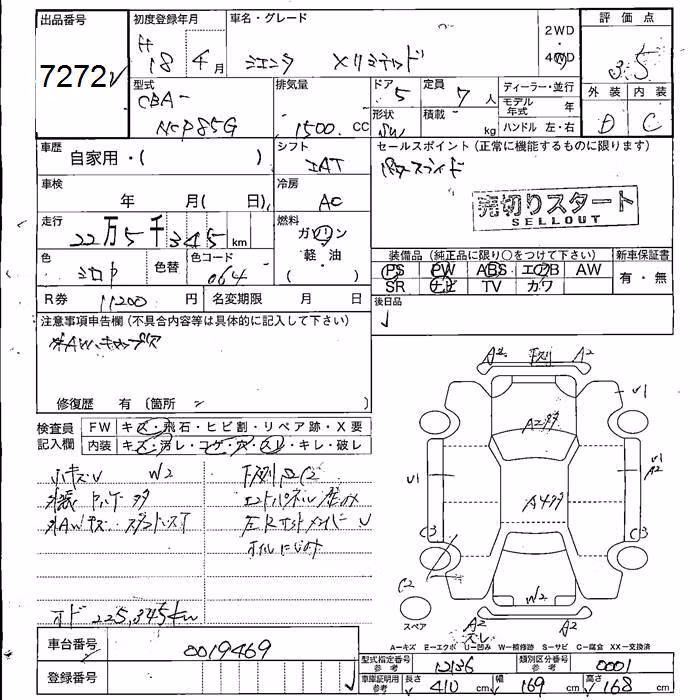 出品番号 初度登録年月 車名・グレード 2WD 評価点
7272
H 18 4月 シエンタ Xリミテッド 4WD 3.5
型式 排気量 ドア 定員 ディーラー・並行 外装 内装
CBA- 5 7人 モデル年式 年
NCP85G 1500 cc 形状 積載 kg ハンドル 左・右 D C
車歴 自家用・( ) シフト セールスポイント(正常に機能するものに限ります)
IAT パワースライド
車検 年 月( 日) 冷房 AC
売切りスタート
SELLOUT
走行 22万5千345km 燃料 ガソリン・軽油・( )
装備品(純正品に限り○をつけて下さい) 新車保証書
色 シロ 色替 色コード 064
PS PW ABS エアB AW 有・無
SR ナビ TV カワ
R券 11200円 名変期限 月 日 後日品
注意事項申告欄(不具合内容等は具体的に記入して下さい)
AW、キャップ
修復歴 有(箇所
検査員記入欄 FW キズ・飛石・ヒビ割・リペア跡・X要
内装 キズ・汚レ・コゲ・穴・スレ・キレ・破レ
小キズU W2
A2 A2
U1
A2多
U1 U1
A2
A4多
C3 C3
C2
W2
スペア
A2 A2
スレ
オド 225,345km
A−キズ E−エクボ U−凹み W−補修跡 S−サビ C−腐食 XX−交換済
車台番号 0019469
型式指定番号 参考 12136 類別区分番号 参考 0001
登録番号
車庫証明用 参考 長さ 410cm 幅 169cm 高さ 168cm